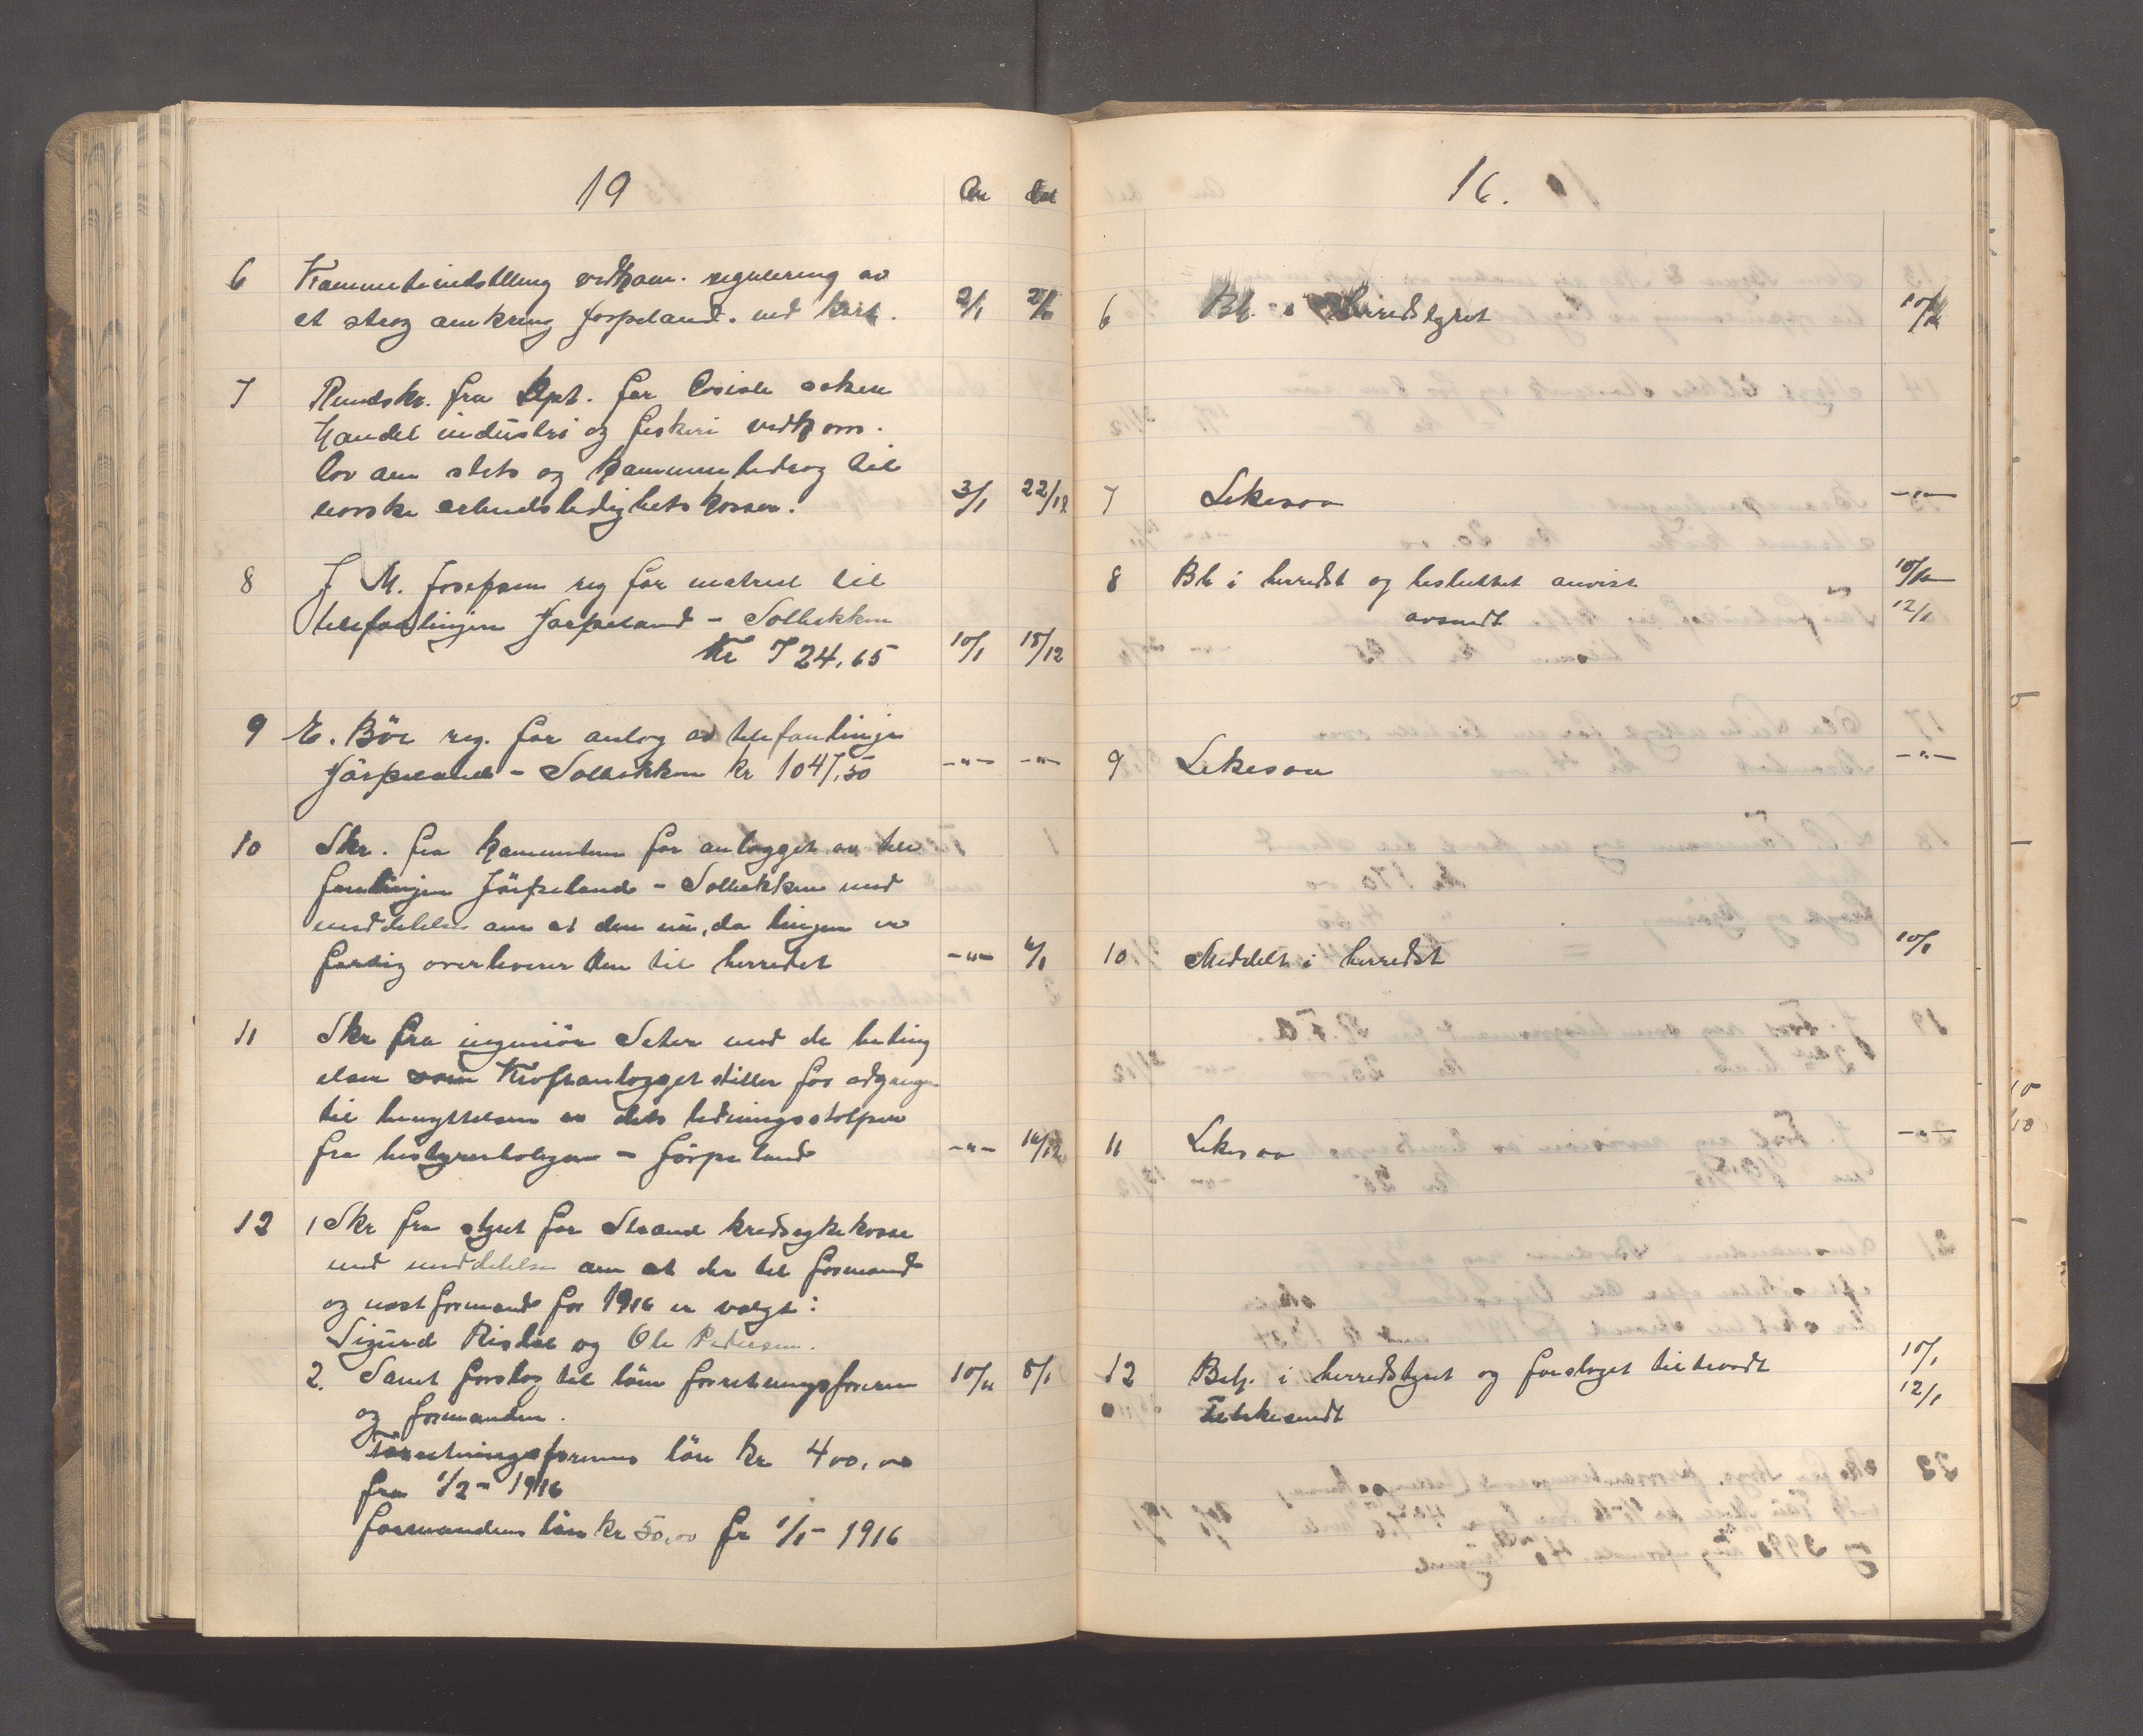 19
An Dat
6 Kommiteindstilling vedkom. regulering av
et strøg omkring Jørpeland. med kart. 2/1
7 Rundskr. fra Dept. for Sosiale saker
handel industri og fiskeri vedkom.
lov om stats og kommunebidrag til
norske arbeidsledighetskasser. 3/1 22/12
8 J. M. Josefsen reg for matriel til
telefonlinjen Jørpeland - Solbakken
Kr 724,65 10/1 18/12
9 E. Böe reg. for anlæg av telefonlinje
Jörpeland - Solbakken kr 1047,50 -"- -"-
10 Skr. fra komiteen for anlægget av tele
fonlinjen Jörpeland - Solbakken med
meddelelse om at den nu, da linjen er
færdig overleverer den til herredet -"-
11 Skr fra ingeniör Seter med de beting
elser som Kraftanlægget stiller for adgangen
til benyttelsen av dets ledningsstolper
fra bestyrerboligen - Jörpeland -"-
12 1 Skr fra styret for Strand kredssykekasse
med meddelelse om at der til formand
og næstformand for 1916 er valgt:
Sigurd Riskal og Ole Pedersen.
2. Samt forslag til lön forretningsföreren 8/1
og formanden.
Forretningsförerens lön kr 400,00
fra 1/2 - 1916
formandens lön kr 50,00 fr 1/1 - 1916
16.
6 Bh. i herredstyret
7 Likesaa -"-
8 Bh i herredst og besluttet anvist
avsendt 12/1
9 Likesaa -"-
10 Meddelt i herredst 10/1
11 Likesaa -"-
12 Beh. i herredstyret og forslaget tiltraadt 10/1
Tilbakesendt 12/1